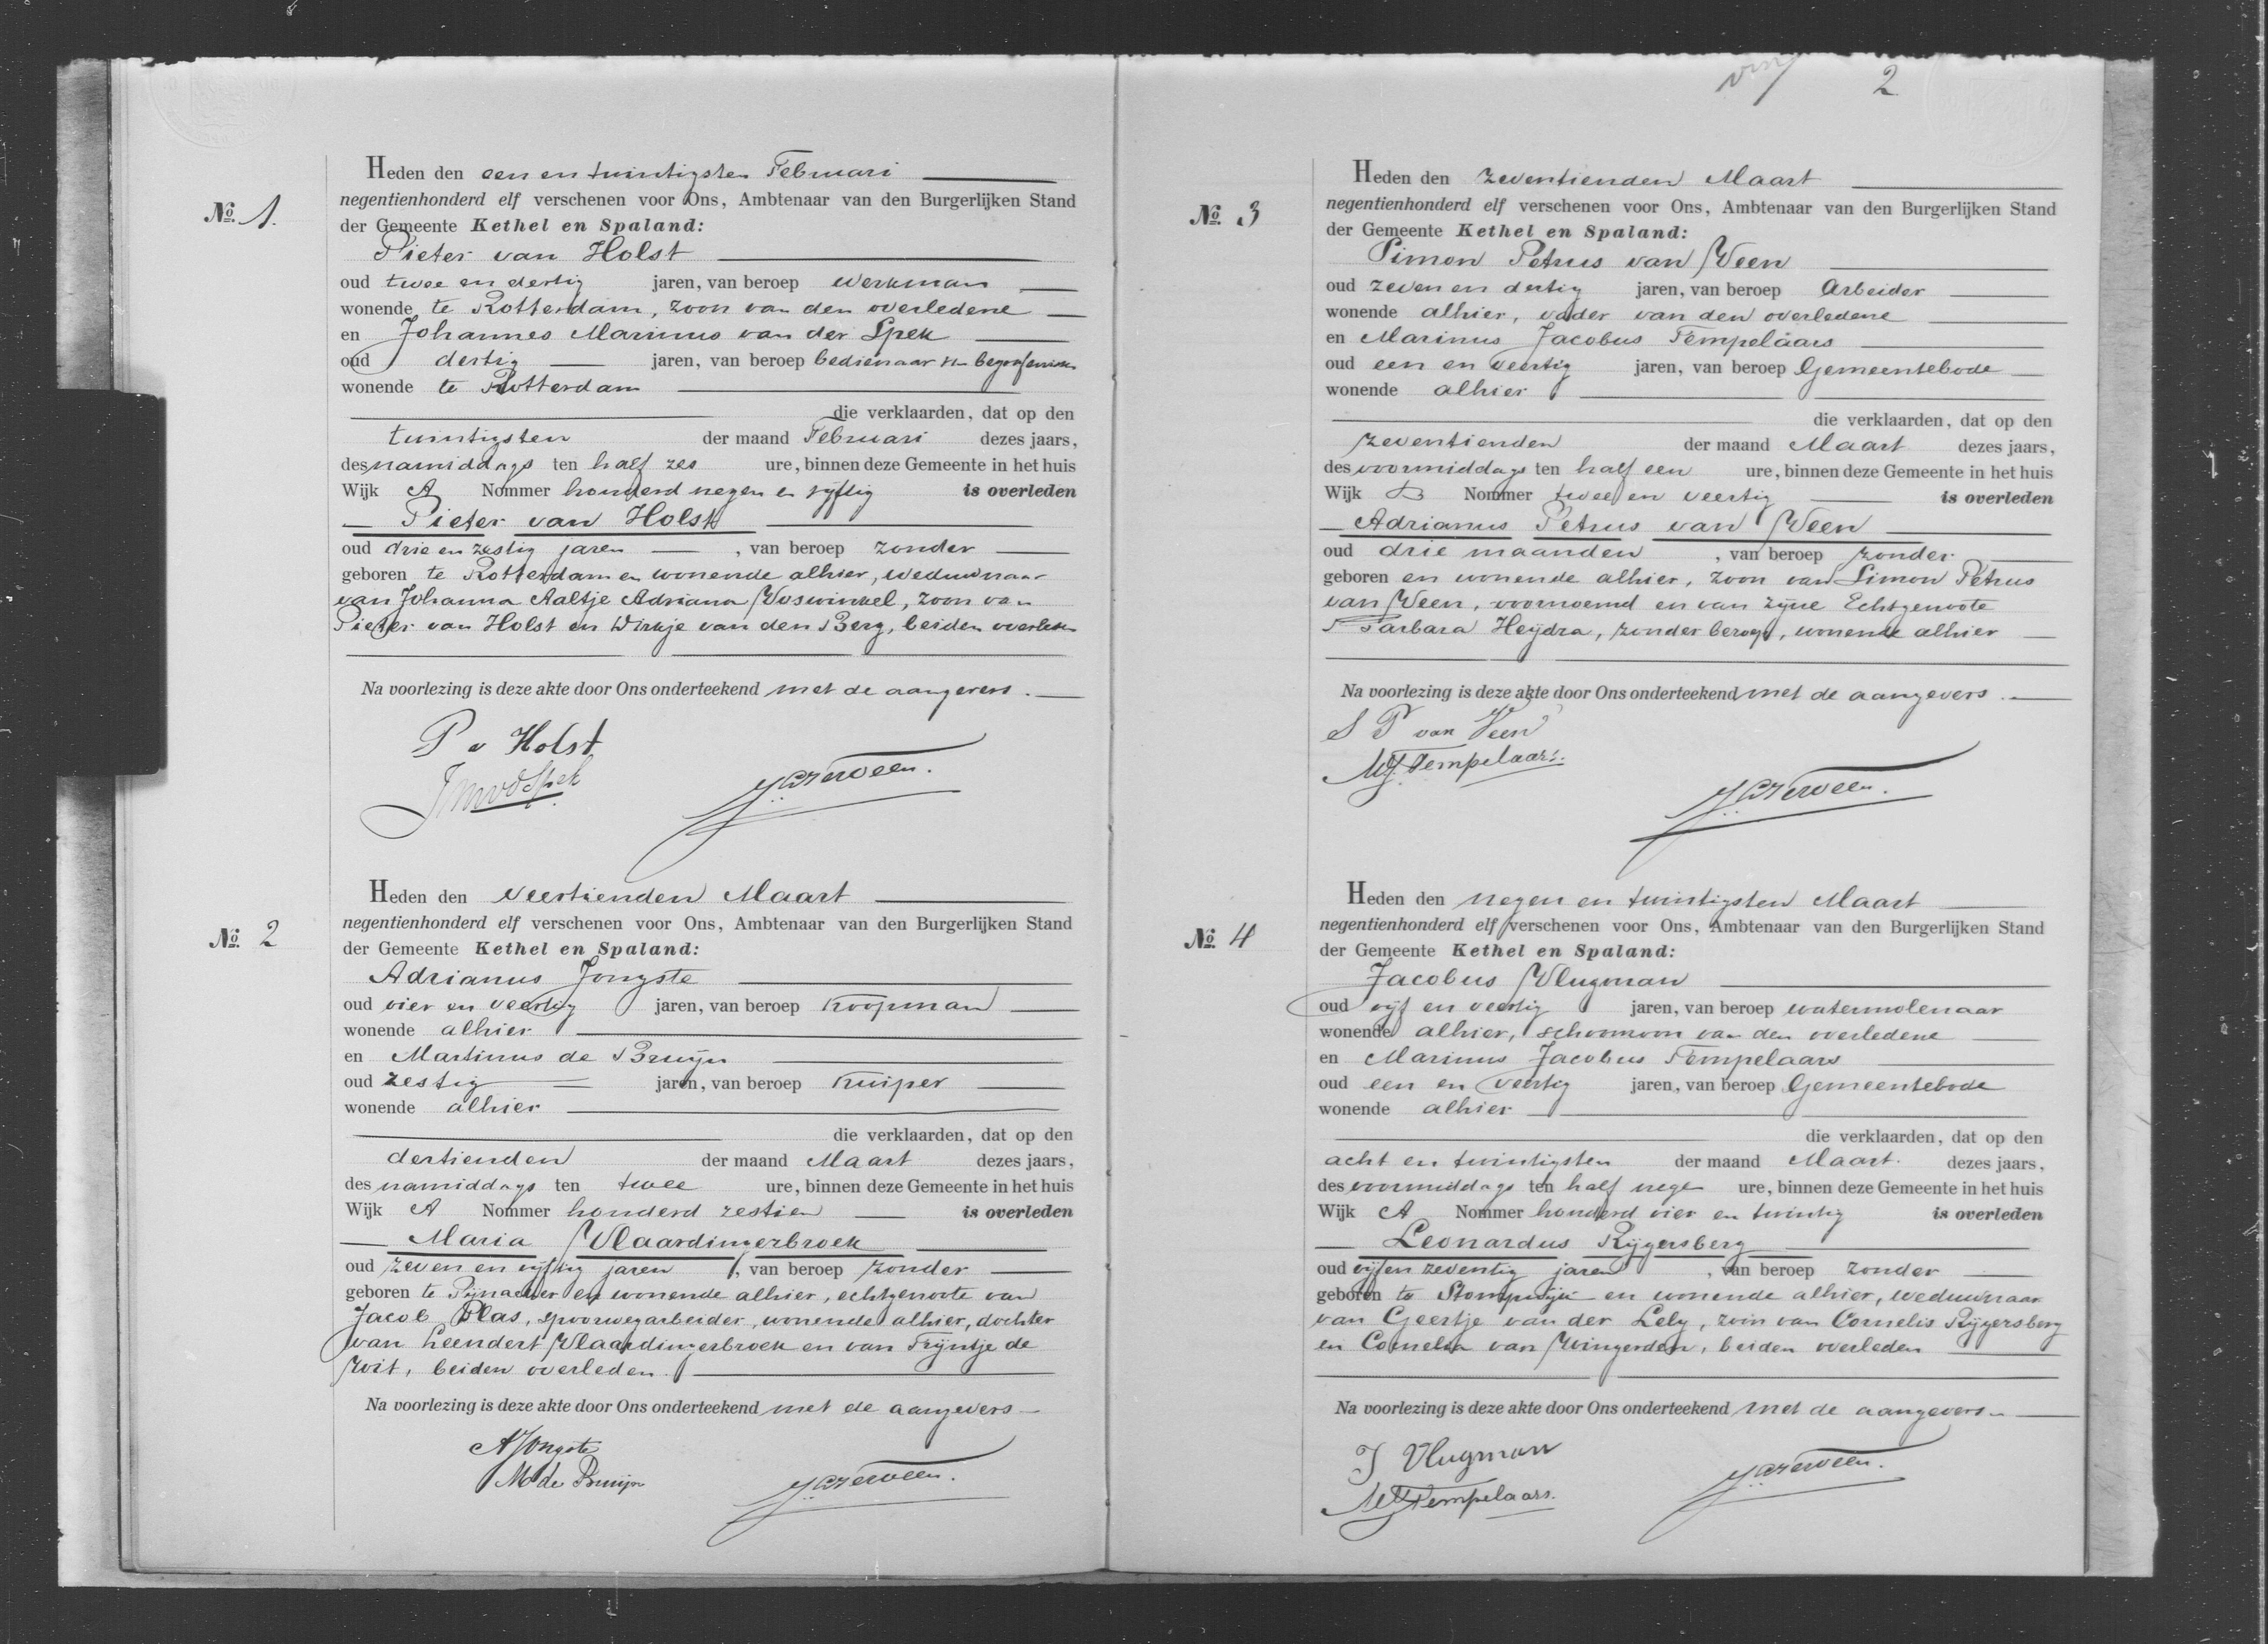 No. 1.
Heden den een en twintigsten Februari
negentienhonderd elf verschenen voor Ons, Ambtenaar van den Burgerlijken Stand
der Gemeente Kethel en Spaland:
Pieter van Holst
oud twee en dertig jaren, van beroep werkman
wonende te Rotterdam, zoon van den overledene
en Johannes Marinus van der Spek
oud dertig jaren, van beroep bedienaar v begrafenissen
wonende te Rotterdam
die verklaarden, dat op den
twintigsten der maand Februari dezes jaars,
des namiddags ten half zes ure, binnen deze Gemeente in het huis
Wijk A Nommer honderd negen en vijftig is overleden
Pieter van Holst
oud drie en zestig jaren, van beroep zonder
geboren te Rotterdam en wonende alhier, weduwnaar
van Johanna Aaltje Adriana Voswinkel, zoon van
Pieter van Holst en Dirkje van den Berg, beiden overleden
Na voorlezing is deze akte door Ons onderteekend met de aangevers.
P v Holst
JMvdSpek
No. 2
Heden den veertienden Maart
negentienhonderd elf verschenen voor Ons, Ambtenaar van den Burgerlijken Stand
der Gemeente Kethel en Spaland:
Adrianus Jongste
oud vier en veertig jaren, van beroep Koopman
wonende alhier
en Martinus de Bruijn
oud zestig jaren, van beroep Kuiper
wonende alhier
die verklaarden, dat op den
dertienden der maand Maart dezes jaars,
des namiddags ten twee ure, binnen deze Gemeente in het huis
Wijk A Nommer honderd zestien is overleden
Maria Vlaardingerbroek
oud zeven en vijftig jaren, van beroep zonder
geboren te Pijnacker en wonende alhier, echtgenoote van
Jacob Plas, spoorwegarbeider, wonende alhier, dochter
van Leendert Vlaardingerbroek en van Trijntje de
Wit, beiden overleden.
Na voorlezing is deze akte door Ons onderteekend met de aangevers
AJongste
M de Bruijn
2
No. 3
Heden den zeventienden Maart
negentienhonderd elf verschenen voor Ons, Ambtenaar van den Burgerlijken Stand
der Gemeente Kethel en Spaland:
Simon Petrus van Veen
oud zeven en dertig jaren, van beroep Arbeider
wonende alhier, vader van den overledene
en Marinus Jacobus Tempelaars
oud een en veertig jaren, van beroep Gemeentebode
wonende alhier
die verklaarden, dat op den
zeventienden der maand Maart dezes jaars,
des voormiddags ten half een ure, binnen deze Gemeente in het huis
Wijk B Nommer twee en veertig is overleden
Adrianus Petrus van Veen
oud drie maanden, van beroep zonder
geboren en wonende alhier, zoon van Simon Petrus
van Veen, voornoemd en van zijne Echtgenoote
Barbara Heijdra, zonder beroep, wonende alhier
Na voorlezing is deze akte door Ons onderteekend met de aangevers.
S P van Veen
MJTempelaars.
No. 4
Heden den negen en twintigsten Maart
negentienhonderd elf verschenen voor Ons, Ambtenaar van den Burgerlijken Stand
der Gemeente Kethel en Spaland:
Jacobus Vlugman
oud vijf en veertig jaren, van beroep watermolenaar
wonende alhier, schoonzoon van den overledene
en Marinus Jacobus Tempelaars
oud een en veertig jaren, van beroep Gemeentebode
wonende alhier
die verklaarden, dat op den
acht en twintigsten der maand Maart. dezes jaars,
des voormiddags ten half negen ure, binnen deze Gemeente in het huis
Wijk A Nommer honderd vier en twintig is overleden
Leonardus Rijgersberg
oud vijf en zeventig jaren, van beroep zonder
geboren te Stompwijk en wonende alhier, weduwnaar
van Geertje van der Lely, zoon van Cornelis Rijgersberg
en Cornelia van Wingerden, beiden overleden
Na voorlezing is deze akte door Ons onderteekend met de aangevers.
J Vlugman
MJTempelaars.